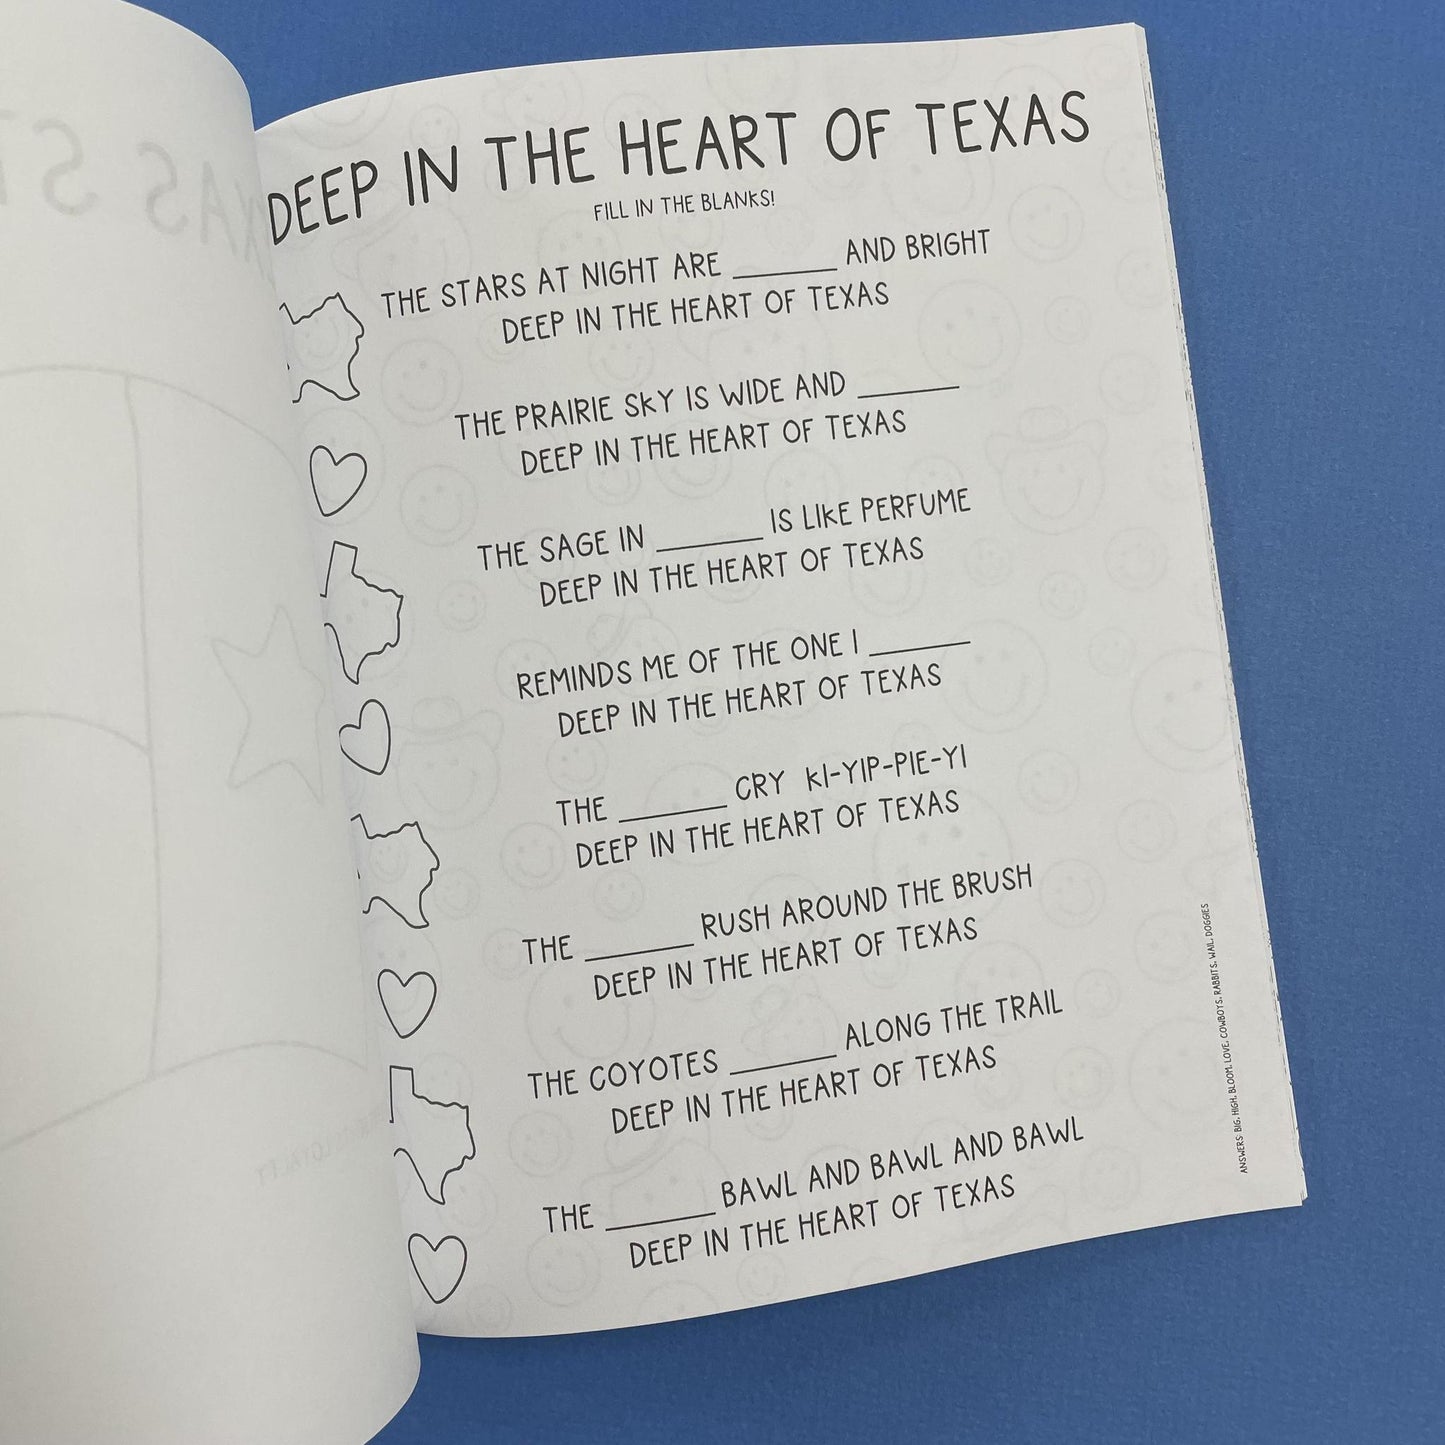 DEEP IN THE HEART OF TEXAS
FILL IN THE BLANKS!
THE STARS AT NIGHT ARE ______ AND BRIGHT
DEEP IN THE HEART OF TEXAS
THE PRAIRIE SKY IS WIDE AND ______
DEEP IN THE HEART OF TEXAS
THE SAGE IN ______ IS LIKE PERFUME
DEEP IN THE HEART OF TEXAS
REMINDS ME OF THE ONE I ______
DEEP IN THE HEART OF TEXAS
THE ______ CRY KI-YIP-PIE-YI
DEEP IN THE HEART OF TEXAS
THE ______ RUSH AROUND THE BRUSH
DEEP IN THE HEART OF TEXAS
THE COYOTES ______ ALONG THE TRAIL
DEEP IN THE HEART OF TEXAS
THE ______ BAWL AND BAWL AND BAWL
DEEP IN THE HEART OF TEXAS
ANSWERS: BIG, HIGH, BLOOM, LOVE, COWBOYS, RABBITS, WAIL, DOGGIES